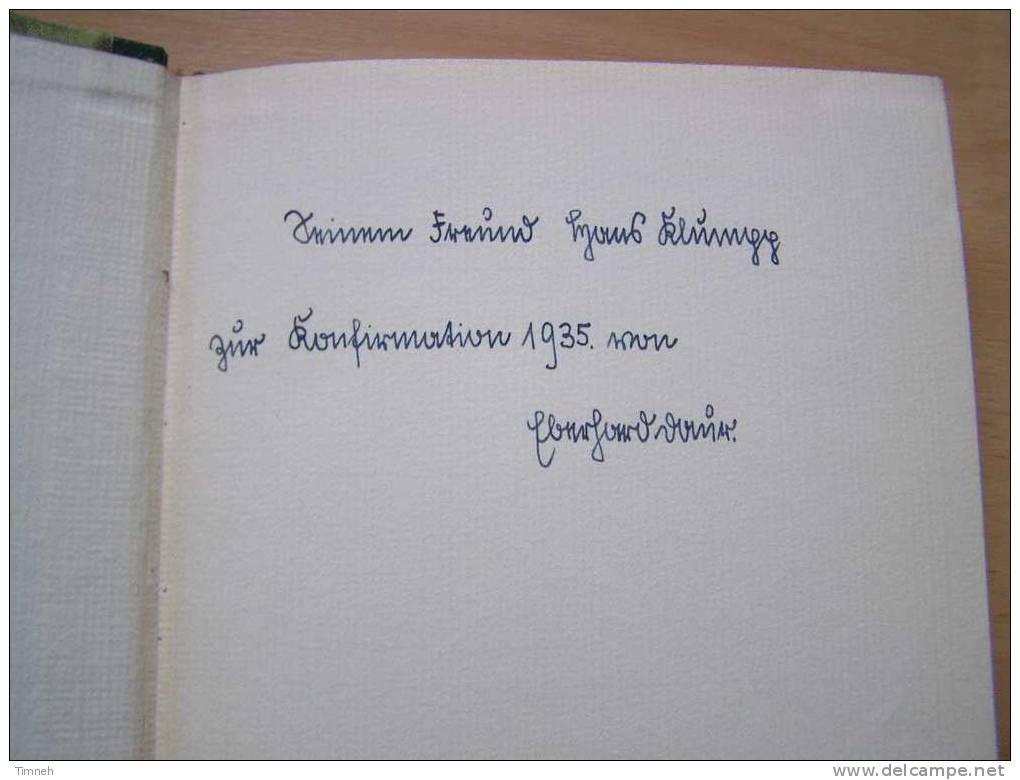 Seinem Freund Hans Klumpp
zur Konfirmation 1935. von
Eberhard Daur.
Timneh
www.delcampe.net